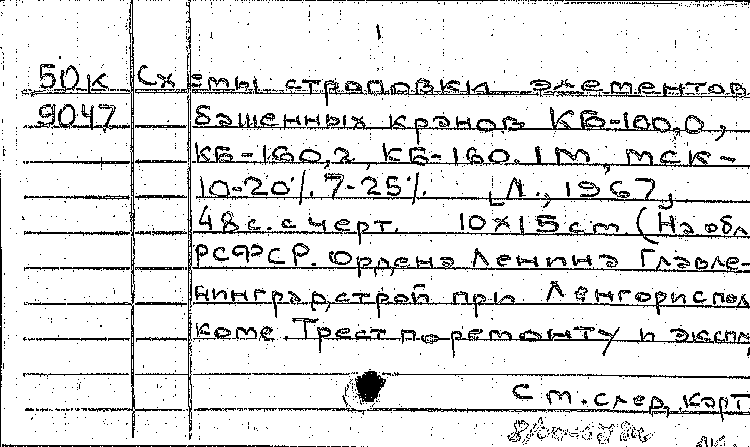 1
50к Схемы строповки элементов
9047 башенных кранов КБ-160,0,
КБ-160,2, КБ-160.1М, МСК-
10-20%. 7-25%. [Л., 1967]
48 с. с черт. 10х15 см (На обл.
РСФСР. Ордена Ленина Главле-
нинградстрой при Ленгориспол
коме. Трест по ремонту и экспл
См. след. карт